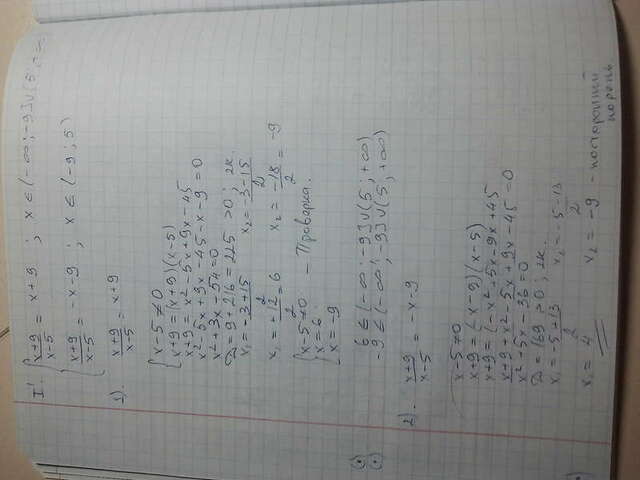 I. { x+9/x-5 = x+9 ; x ∈ (-∞; -9] ∪ (5; +∞)
{ x+9/x-5 = -x-9 ; x ∈ (-9; 5)
1). x+9/x-5 = x+9
{ x-5≠0
x+9 = (x+9)(x-5)
x+9 = x²-5x+9x-45
x²-5x+9x-45-x-9=0
x²+3x-54=0
D=9+216=225 >0; 2к.
x₁ = -3+15/2 x₂ = -3-15/2
x₁ = +12/2 = 6 x₂ = -18/2 = -9
{ x-5≠0 - Проверка.
x=6
x=-9
6 ∈ (-∞; -9] ∪ (5; +∞)
-9 ∈ (-∞; -9] ∪ (5; +∞)
2). x+9/x-5 = -x-9
{ x-5≠0
x+9 = (-x-9)(x-5)
x+9 = (-x²+5x-9x+45
x+9+x²-5x+9x-45=0
x²+5x-36=0
D=169 >0; 2к.
x₁ = -5+13/2 x₂ = -5-13/2
x₁ = 4 x₂ = -9 - посторонний
корень